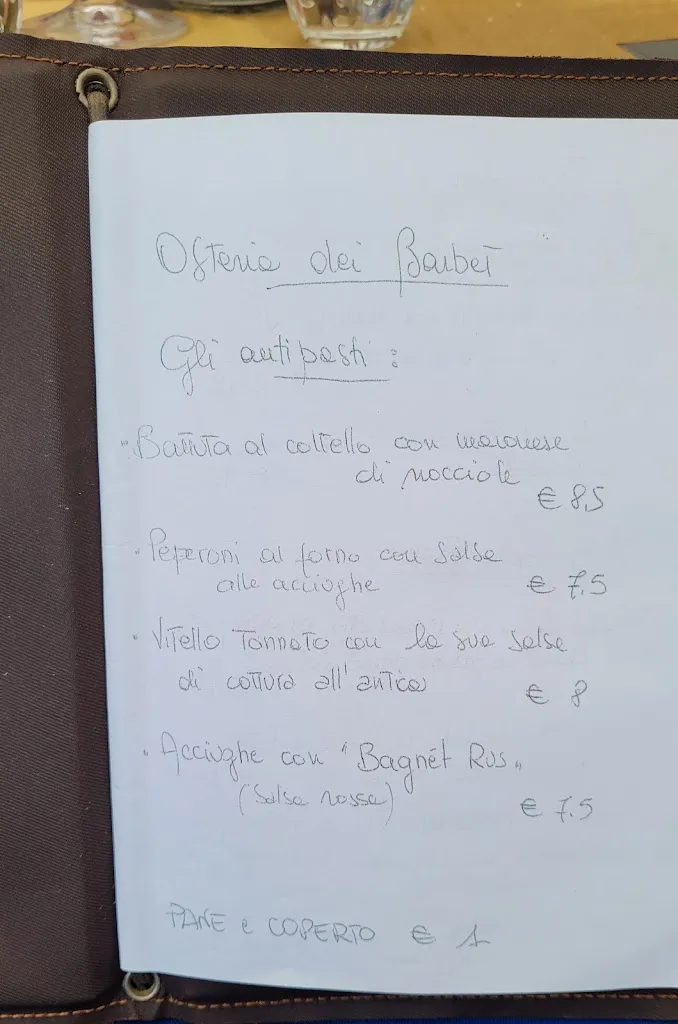 Osteria dei Barbet
Gli antipasti :
· Battuta al coltello con maionese
di nocciole
€ 8,5
· Peperoni al forno con salsa
alle acciughe € 7.5
· Vitello Tonnato con la sua salsa
di cottura all'antica € 8
· Acciughe con "Bagnét Rus"
(Salsa rossa) € 7.5
PANE e COPERTO € 1